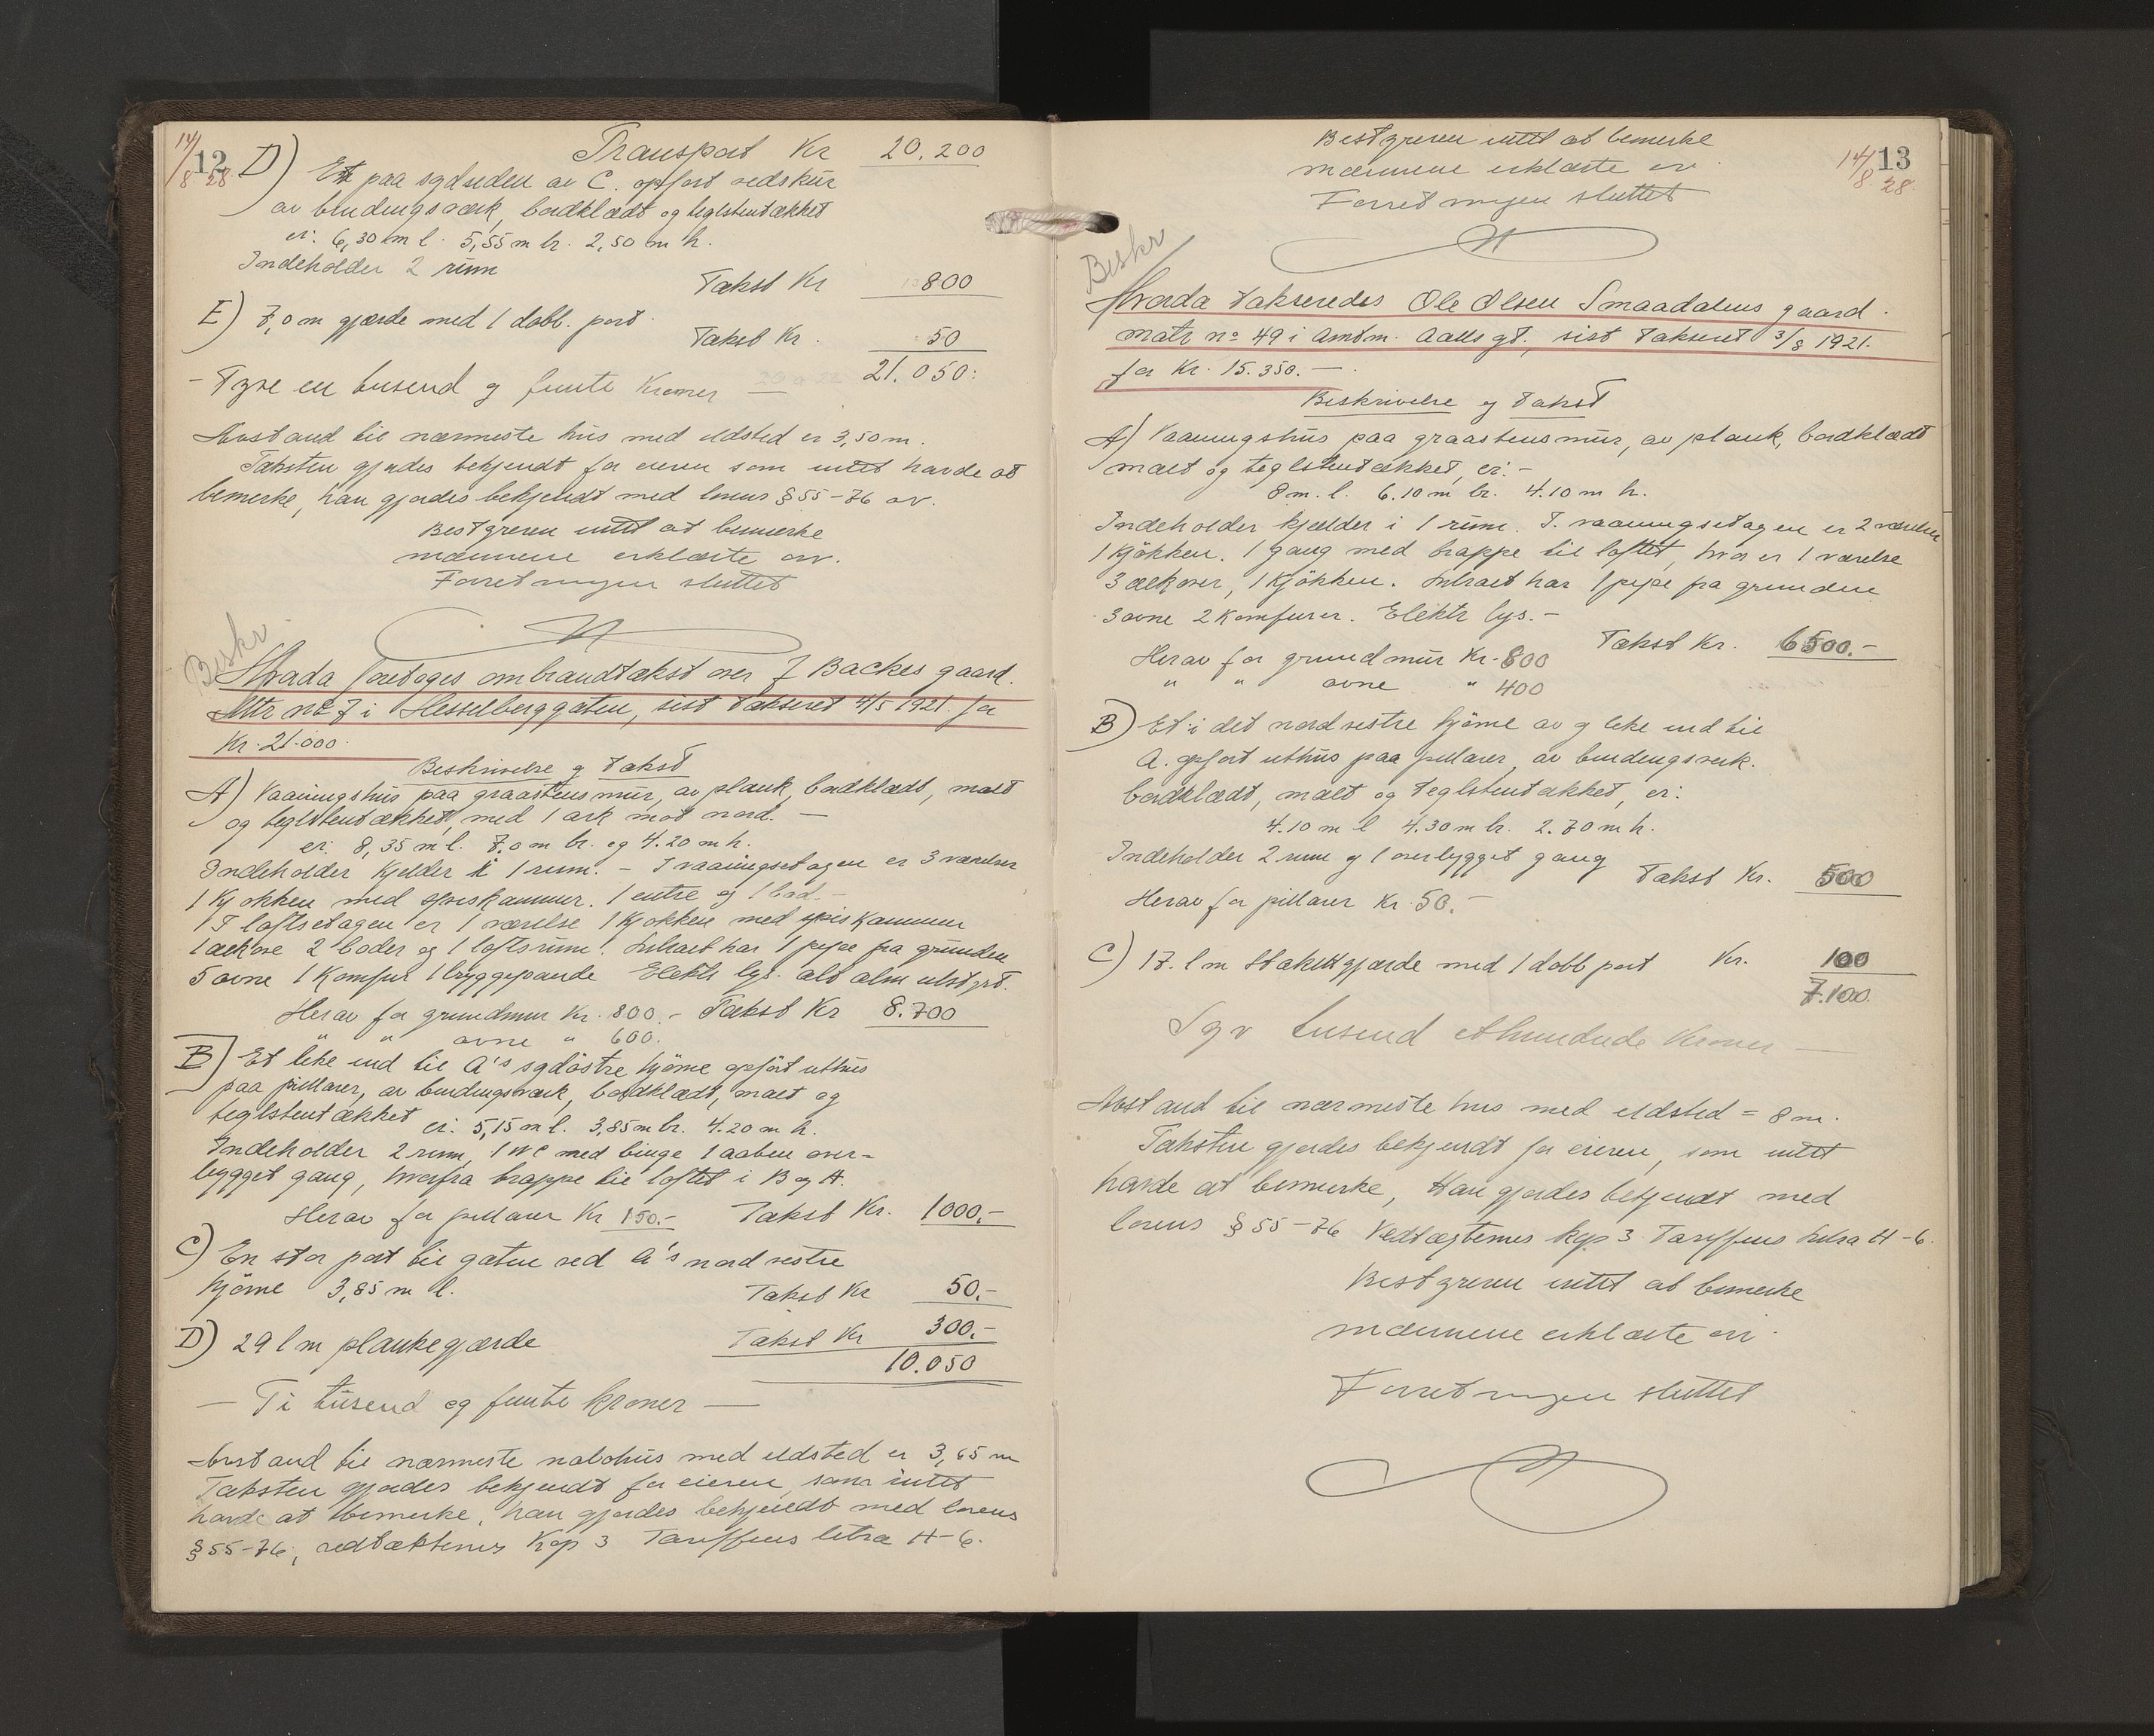 14/8 28
12
Transport Kr 20.200
D) Et paa sydsiden av C. opført vedskur
av bindingsverk, bordklædt og teglstentækket
er: 6,30 m l. 5,55 m br. 2,50 m h.
Indeholder 2 rum
Takst Kr 800
E) 7,0 m gjærde med 1 dobb. port.
Takst Kr. 50
21.050:
- Tyve en tusend og femti Kroner -
Avstand til nærmeste hus med ildsted er 3,50 m.
Taksten gjordes bekjendt for eieren som intet havde at
bemerke, han gjordes bekjendt med lovens § 55-76 av.
Bestyreren intet at bemerke
mændene erklærte sig.
Forretningen sluttet
Beskr
Hvorda foretoges ombrandtakst over J Backes gaard.
Mtr No 7 i Hesselberggaten, sist takseret 4/5 1921 for
Kr. 21.000.
Beskrivelse og takst
A) Vaaningshus paa graastensmur, av plank, bordklædt, malt
og teglstentækket, med 1 ark mot nord. -
er: 8,35 m l. 7.0 m br. og 4.20 m h.
Indeholder Kjelder i 1 rum. - I vaaningsetagen er 3 værelser
1 Kjøkken med spiskammer. 1 entre og 1 bad. -
I loftsetagen er 1 værelse 1 Kjøkken med spiskammer
1 alkove 2 boder og 1 loftsrum. Litra A har 1 pipe fra grunden
5 ovne 1 Komfur 1 bryggepande Elektr lys. alt alm utstyrt.
Herav for grundmur Kr. 800.- Takst Kr 8.700
" " ovne " 600.
B) Et like ind til A's sydøstre hjørne opført uthus
paa pillarer, av bindingsværk, bordklædt, malt og
teglstentækket er: 5,15 m l. 3,85 m br. 4.20 m h.
Indeholder 2 rum, 1 WC med binge 1 aaben over-
bygget gang, hvorfra trappe til loftet i B og A.
Herav for pillarer Kr 150.- Takst Kr. 1000.-
C) En stor port til gaten ved A's nordvestre
hjørne 3,85 m l. Takst Kr 50.-
D) 29 l m plankegjærde Takst Kr 300.-
10.050
- Ti tusend og femti kroner -
Avstand til nærmeste nabohus med ildsted er 3,65 m
Taksten gjordes bekjendt for eieren, som intet
havde at bemerke, han gjordes bekjendt med lovens
§ 55-76, vedtækternes Kap 3 Tariffens litra H-6.
14/8 28
13
Bestyreren intet at bemerke
mændene erklærte sig
Forretningen sluttet
Beskr
Hvorda takseredes Ole Olsen Smaadalens gaard.
matr no 49 i Amtm. Aalls gt., sist takseret 3/8 1921.
for Kr. 15.350. -
Beskrivelse og takst
A) Vaaningshus paa graastensmur, av plank, bordklædt
malt og teglstentækket, er: -
8 m. l. 6.10 m br. 4.10 m h.
Indeholder kjælder i 1 rum. I vaaningsetagen er 2 værelser
1 Kjøkken. 1 gang med trappe til loftet, hvor er 1 værelse
3 alkover, 1 Kjøkken. Litra A har 1 pipe fra grunden
3 ovne 2 Komfurer. Elektr lys. -
Takst Kr. 6500.-
Herav for grundmur Kr. 800
" " ovne " 400
B) Et i det nordvestre hjørne av og like ind til
A. opført uthus paa pillarer, av bindingsverk.
bordklædt, malt og teglstentækket, er:
4.10 m l 4.30 m br. 2.70 m h.
Indeholder 2 rum og 1 overbygget gang
Takst Kr. 500
Herav for pillarer Kr. 50.-
C) 17. l m Stakitgjærde med 1 dobb port Kr. 100
7.100.
Syv tusend ethundrede Kroner -
Avstand til nærmeste hus med ildsted = 8 m.
Taksten gjordes bekjendt for eieren, som intet
havde at bemerke, Han gjordes bekjendt med
lovens § 55-76 Vedtægternes kap 3 Tariffens litra H-6.
Bestyreren intet at bemerke
mændene erklærte sig
Forretningen sluttet